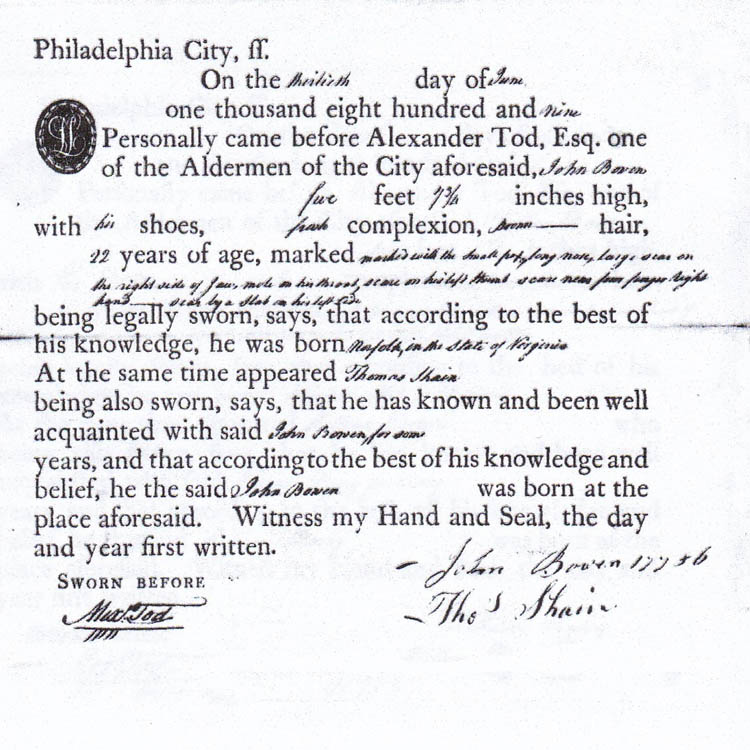 Philadelphia City, ss.
On the thirtieth day of June
one thousand eight hundred and nine
Personally came before Alexander Tod, Esq. one
of the Aldermen of the City aforesaid, John Bowen
five feet 7¾ inches high,
with his shoes, fresh complexion, Brown hair,
22 years of age, marked marked with the small pox, long nose, large scar on
the right side of Jaw, mole on his throat, scare on his left thumb scare near four finger Right
hand scar by a Stab on his left Side
being legally sworn, says, that according to the best of
his knowledge, he was born Norfolk, in the State of Virginia
At the same time appeared Thomas Shain
being also sworn, says, that he has known and been well
acquainted with said John Bowen, for some
years, and that according to the best of his knowledge and
belief, he the said John Bowen was born at the
place aforesaid. Witness my Hand and Seal, the day
and year first written.
SWORN BEFORE
John Bowen
Alexr. Tod
Thos Shain